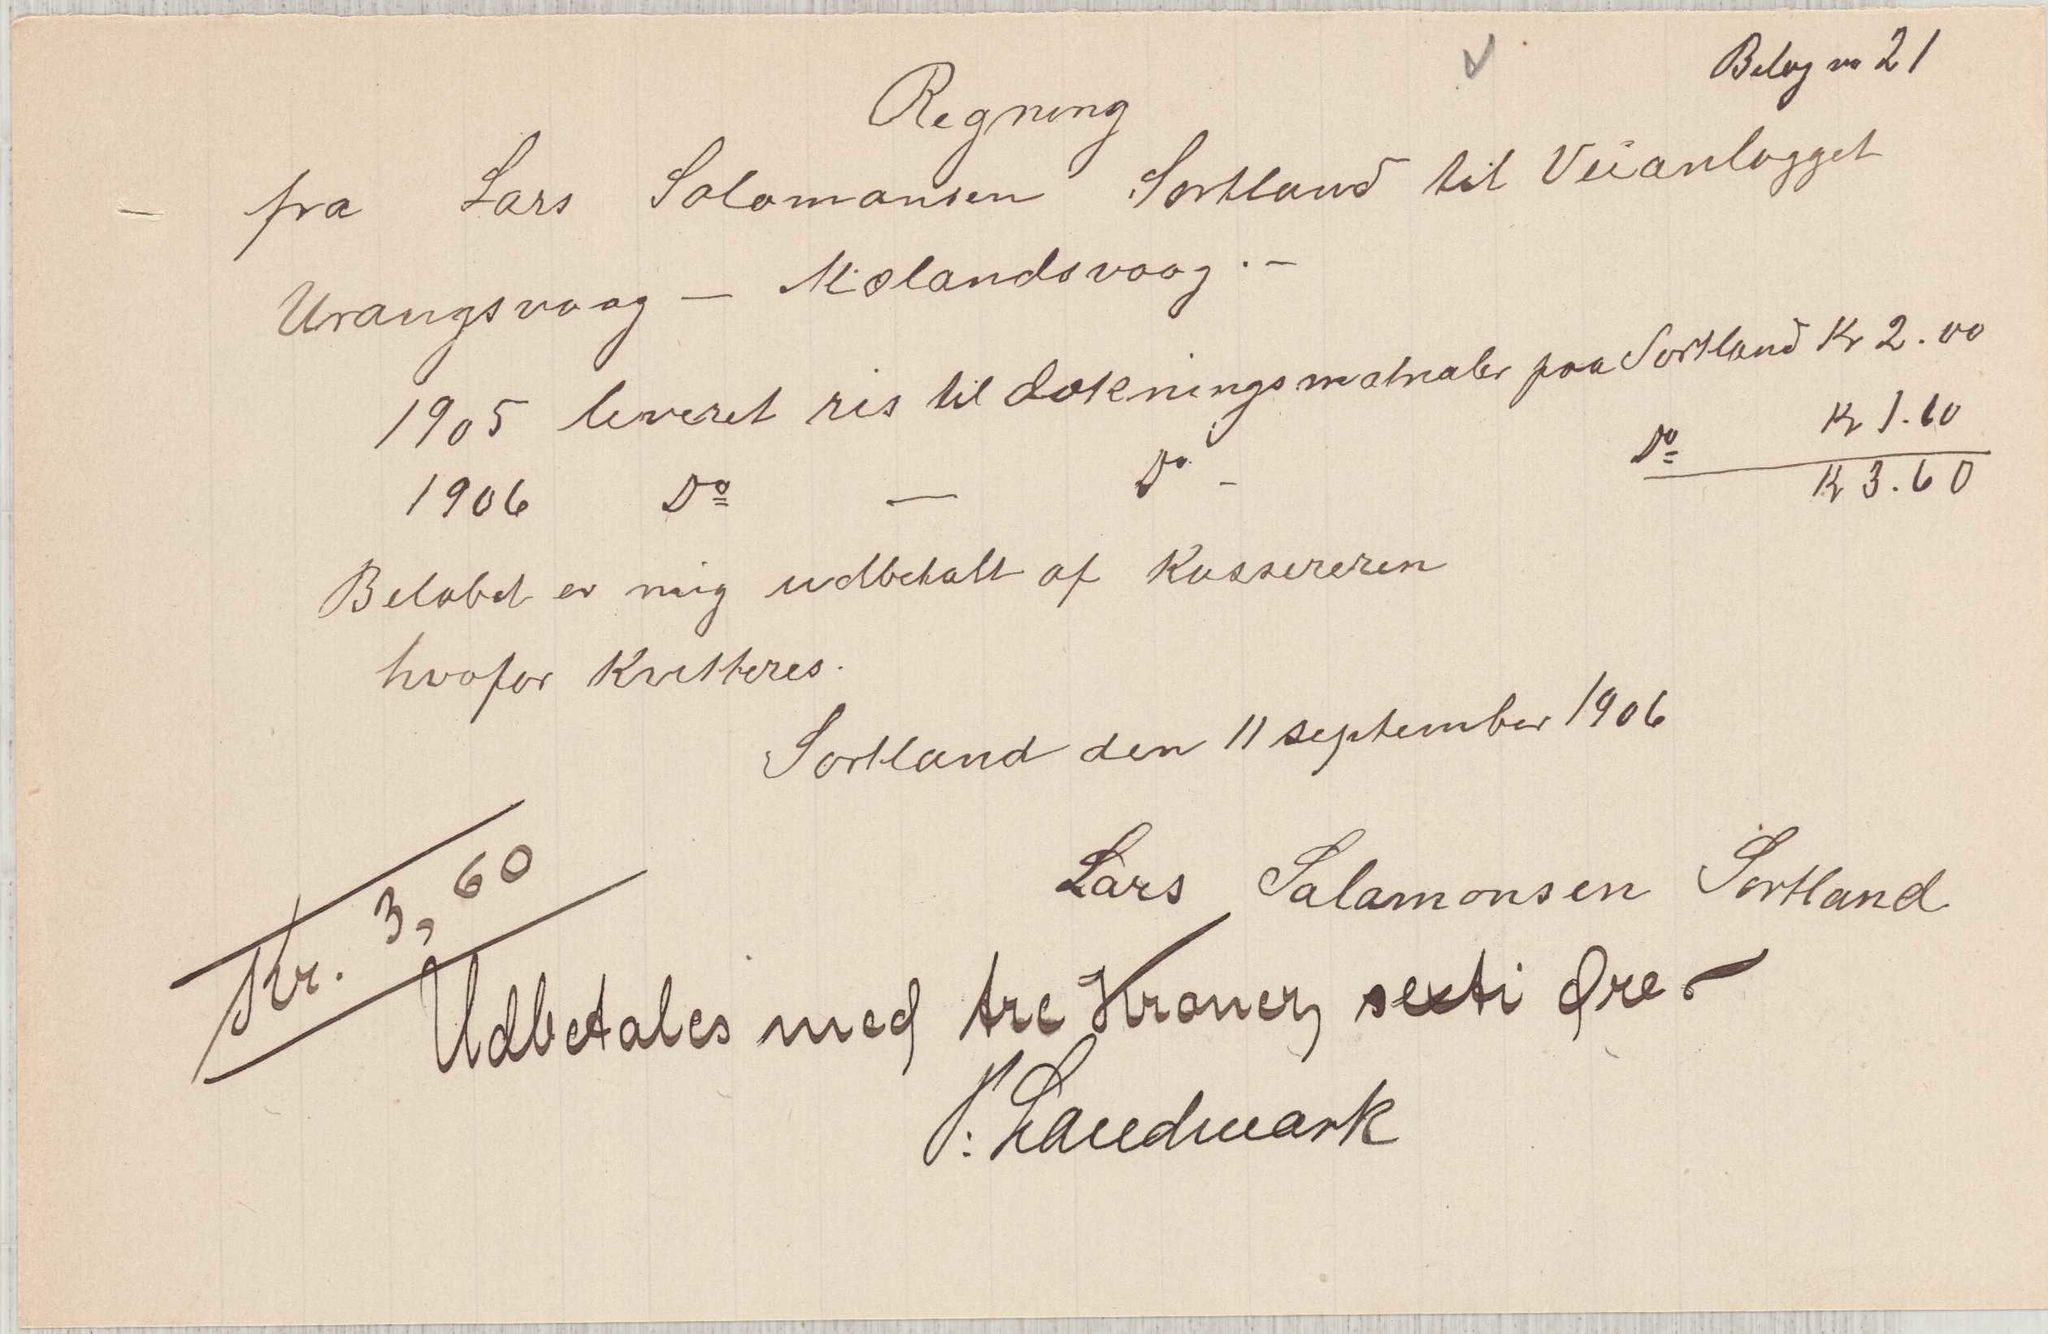 Belag no 21
Regning
fra Lars Salamansen Sortland til Veianlægget
Urangsvaag — Mælandsvaag. —
1905 leveret ris til dækningsmatrialer paa Sortland Kr 2.00
1906 Do — Do - Do Kr 1.60
Kr 3.60
Beløbet er mig udbetalt af Kassereren
hvofor Kvitteres.
Sortland den 11 september 1906
Lars Salamonsen Sortland
Kr. 3,60
Udbetales med tre Kroner, sexti Øre. —
P. Landmark